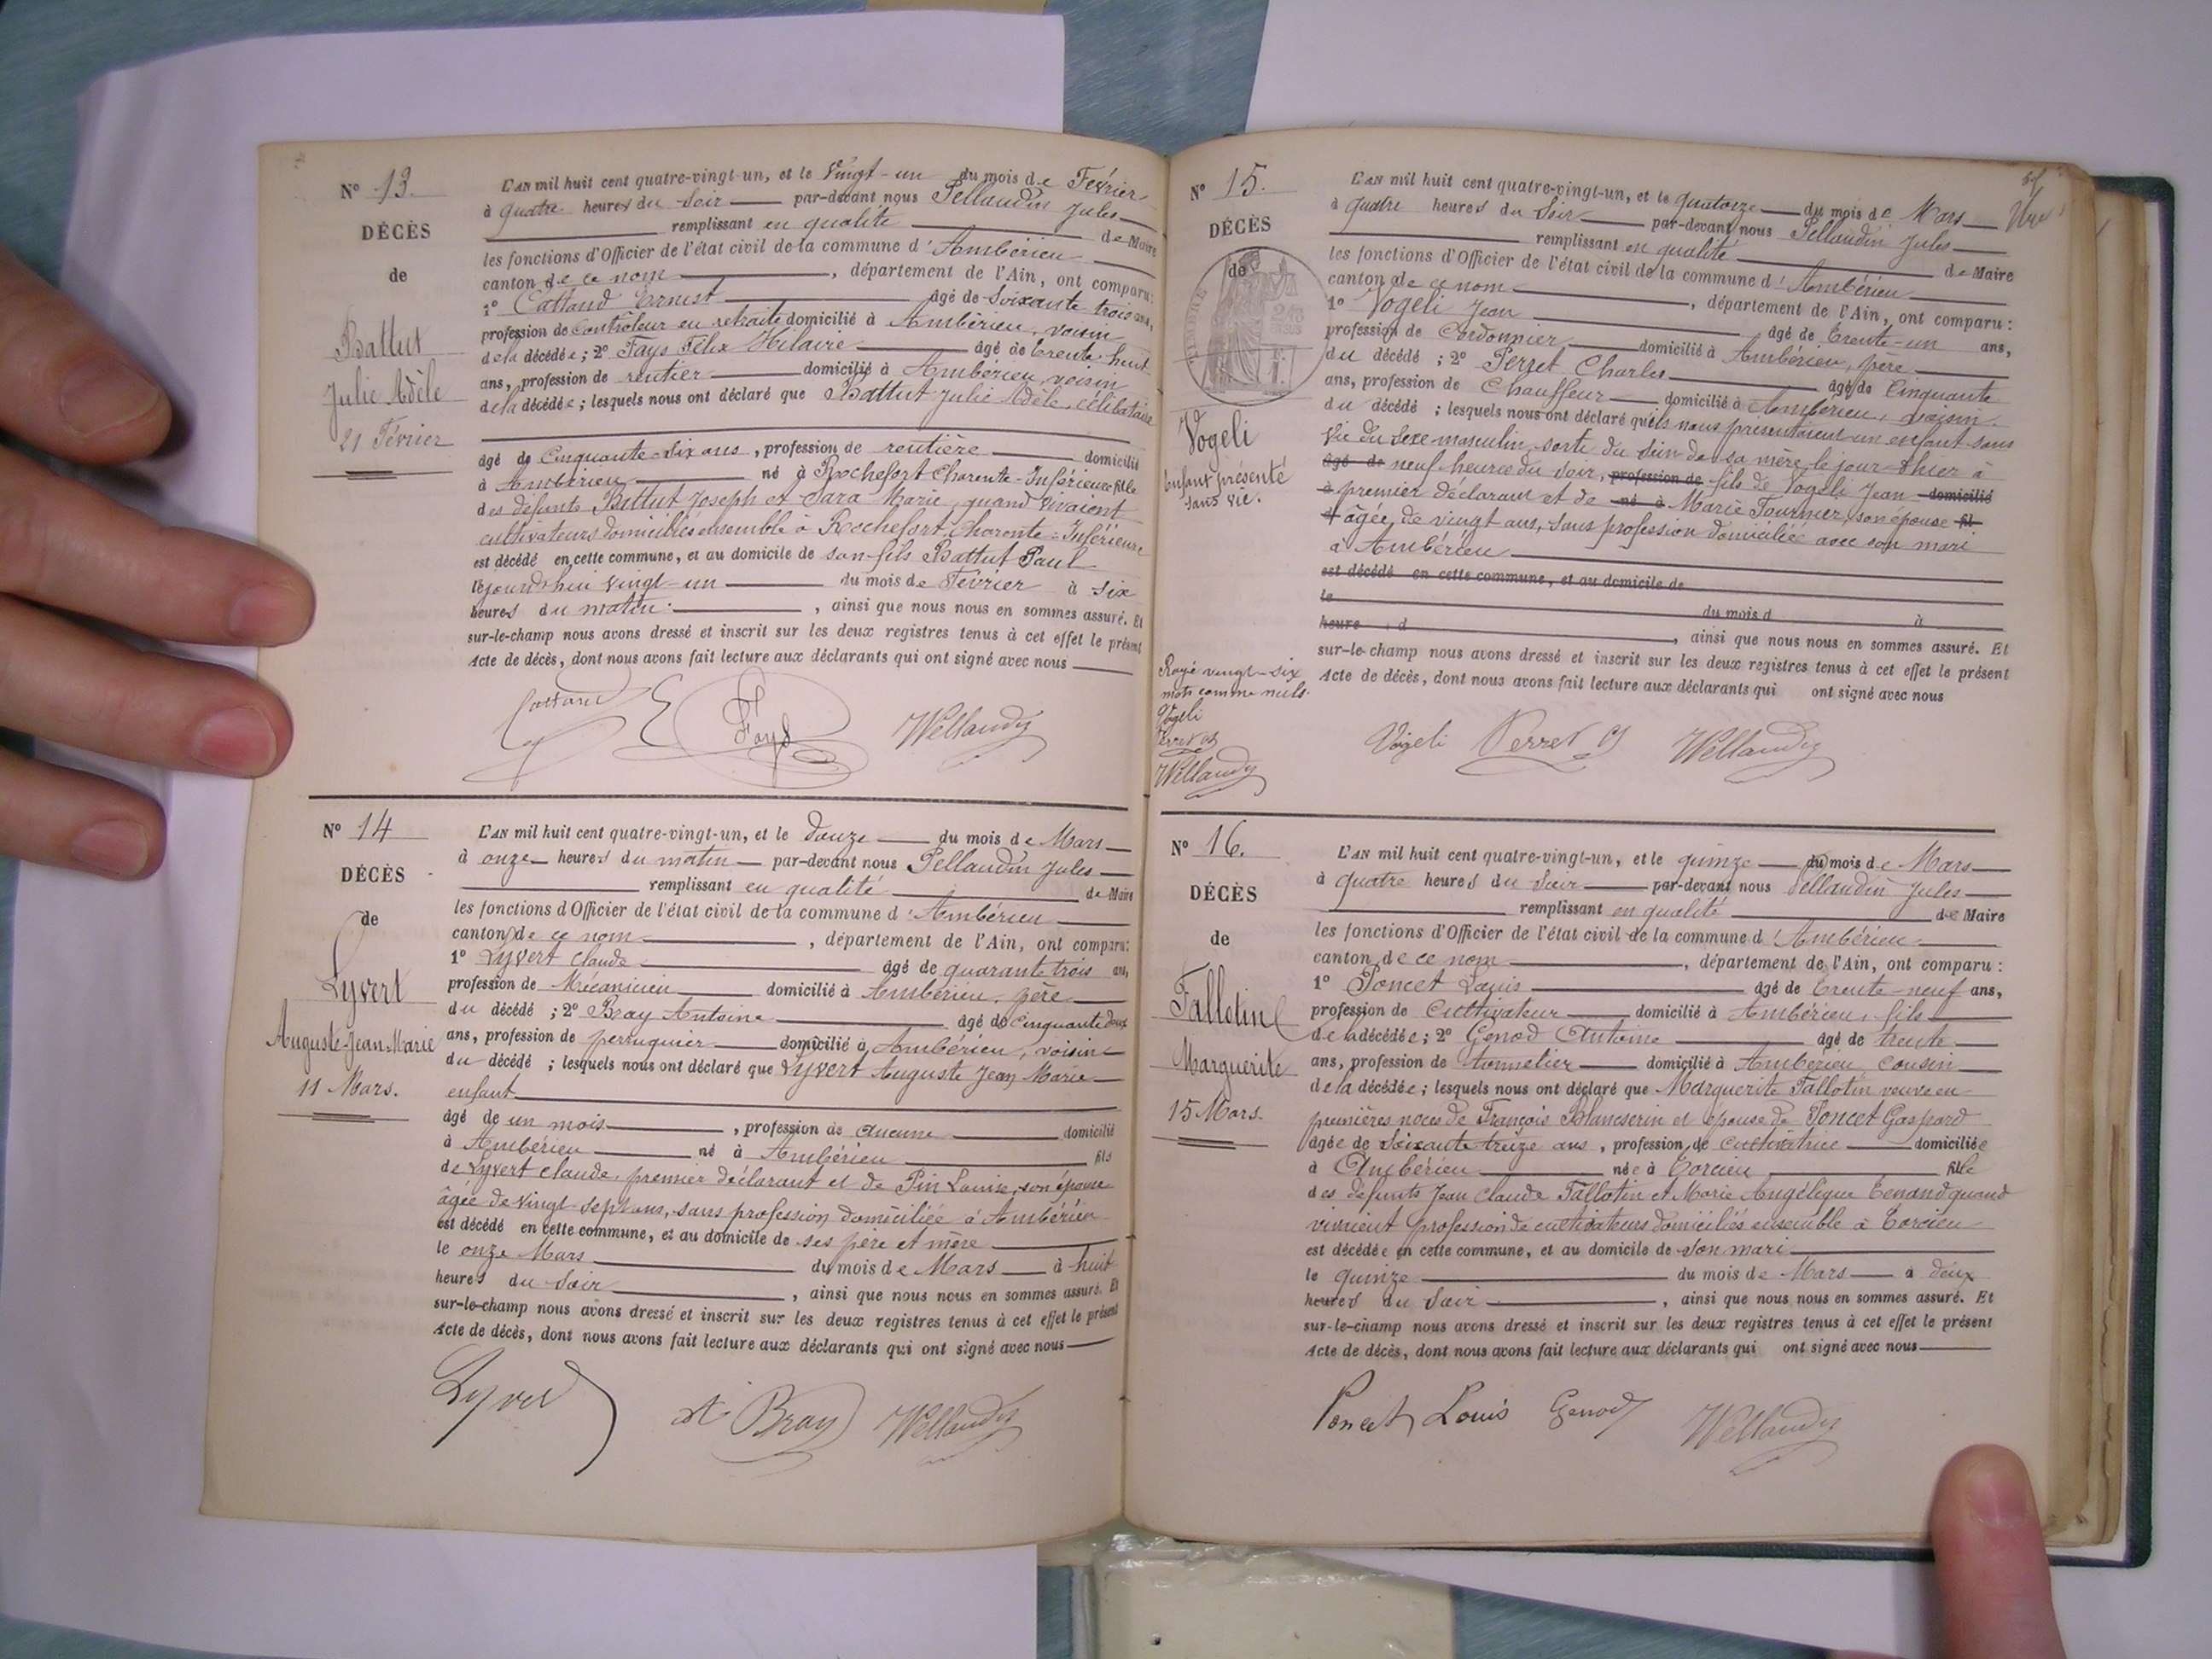 N° 13.
DÉCÈS
de
Battut
Julie Adèle
21 Février
L'AN mil huit cent quatre-vingt-un, et le Vingt-un du mois de Février
à quatre heures du Soir par-devant nous Pellaudin Jules
remplissant en qualité de Maire
les fonctions d'Officier de l'état civil de la commune d'Ambérieu
canton de ce nom , département de l'Ain, ont comparu:
1° Cattand Ernest âgé de Soixante trois ans,
profession de Contrôleur en retraite domicilié à Ambérieu, voisin
de la décédée; 2° Fays Félix Hilaire âgé de trente huit
ans, profession de rentier domicilié à Ambérieu, voisin
de la décédée; lesquels nous ont déclaré que Battut Julie Adèle, célibataire
âgé de Cinquante-six ans, profession de rentière domicilié
à Ambérieu né à Rochefort Charente-Inférieure fille
des défunts Battut Joseph et Sara Marie, quand vivaient
cultivateurs domiciliés ensemble à Rochefort, Charente-Inférieure
est décédé en cette commune, et au domicile de son fils Battut Paul
le jourd'hui vingt-un du mois de Février à six
heures du matin , ainsi que nous nous en sommes assuré. Et
sur-le-champ nous avons dressé et inscrit sur les deux registres tenus à cet effet le présent
Acte de décès, dont nous avons fait lecture aux déclarants qui ont signé avec nous
Cattand Fays JPellaudin
N° 14
DÉCÈS
de
Lyvert
Auguste-Jean-Marie
11 Mars.
L'AN mil huit cent quatre-vingt-un, et le douze du mois de Mars
à onze heures du matin par-devant nous Pellaudin Jules
remplissant en qualité de Maire
les fonctions d'Officier de l'état civil de la commune d'Ambérieu
canton de ce nom , département de l'Ain, ont comparu:
1° Lyvert Claude âgé de quarante trois ans,
profession de Mécanicien domicilié à Ambérieu, père
du décédé ; 2° Bray Antoine âgé de Cinquante deux
ans, profession de perruquier domicilié à Ambérieu, voisin
du décédé ; lesquels nous ont déclaré que Lyvert Auguste Jean Marie
enfant
âgé de un mois , profession de aucune domicilié
à Ambérieu né à Ambérieu fils
de Lyvert Claude, premier déclarant et de Pin Louise, son épouse
âgée de vingt-sept ans, sans profession domiciliée à Ambérieu
est décédé en cette commune, et au domicile de ses père et mère
le onze Mars du mois de Mars à huit
heures du Soir , ainsi que nous nous en sommes assuré. Et
sur-le-champ nous avons dressé et inscrit sur les deux registres tenus à cet effet le présent
Acte de décès, dont nous avons fait lecture aux déclarants qui ont signé avec nous
Lyvert At Bray JPellaudin
N° 15.
DÉCÈS
de
Vogeli
Enfant présenté
sans vie.
Rayé vingt-six
mots comme nuls.
Vogeli
Perret Ch
JPellaudin
L'AN mil huit cent quatre-vingt-un, et le quatorze du mois de Mars
à quatre heures du Soir par-devant nous Pellaudin Jules
remplissant en qualité de Maire
les fonctions d'Officier de l'état civil de la commune d'Ambérieu
canton de ce nom , département de l'Ain, ont comparu:
1° Vogeli Jean âgé de trente-un ans,
profession de Cordonnier domicilié à Ambérieu, père
du décédé ; 2° Perret Charles âgé de Cinquante
ans, profession de Chauffeur domicilié à Ambérieu, voisin
du décédé ; lesquels nous ont déclaré qu'ils nous présentaient un enfant sans
vie du Sexe masculin, sorti du sein de sa mère, le jour d'hier à
âgé de neuf heures du Soir, profession de fils de Vogeli Jean domicilié
à premier déclarant et de né à Marie Fournier, son épouse fil
d âgée de vingt ans, sans profession domiciliée avec son mari
à Ambérieu
est décédé en cette commune, et au domicile de
le du mois d à
heure d , ainsi que nous nous en sommes assuré. Et
sur-le-champ nous avons dressé et inscrit sur les deux registres tenus à cet effet le présent
Acte de décès, dont nous avons fait lecture aux déclarants qui ont signé avec nous
Vogeli Perret Ch JPellaudin
N° 16.
DÉCÈS
de
Fallotin
Marguerite
15 Mars.
L'AN mil huit cent quatre-vingt-un, et le quinze du mois de Mars
à quatre heures du Soir par-devant nous Pellaudin Jules
remplissant en qualité de Maire
les fonctions d'Officier de l'état civil de la commune d'Ambérieu
canton de ce nom , département de l'Ain, ont comparu:
1° Poncet Louis âgé de trente-neuf ans,
profession de Cultivateur domicilié à Ambérieu, fils
de la décédée; 2° Genod Antoine âgé de trente
ans, profession de tonnelier domicilié à Ambérieu, Cousin
de la décédée; lesquels nous ont déclaré que Marguerite Fallotin veuve en
premières noces de François Blancserin et épouse de Poncet Gaspard
âgée de Soixante treize ans, profession de cultivatrice domiciliée
à Ambérieu née à Torcieu fille
des défunts Jean Claude Fallotin et Marie Angélique Tenand quand
vivaient profession de cultivateurs domiciliés ensemble à Torcieu
est décédée en cette commune, et au domicile de son mari
le quinze du mois de Mars à deux
heures du Soir , ainsi que nous nous en sommes assuré. Et
sur-le-champ nous avons dressé et inscrit sur les deux registres tenus à cet effet le présent
Acte de décès, dont nous avons fait lecture aux déclarants qui ont signé avec nous
Poncet Louis Genod JPellaudin